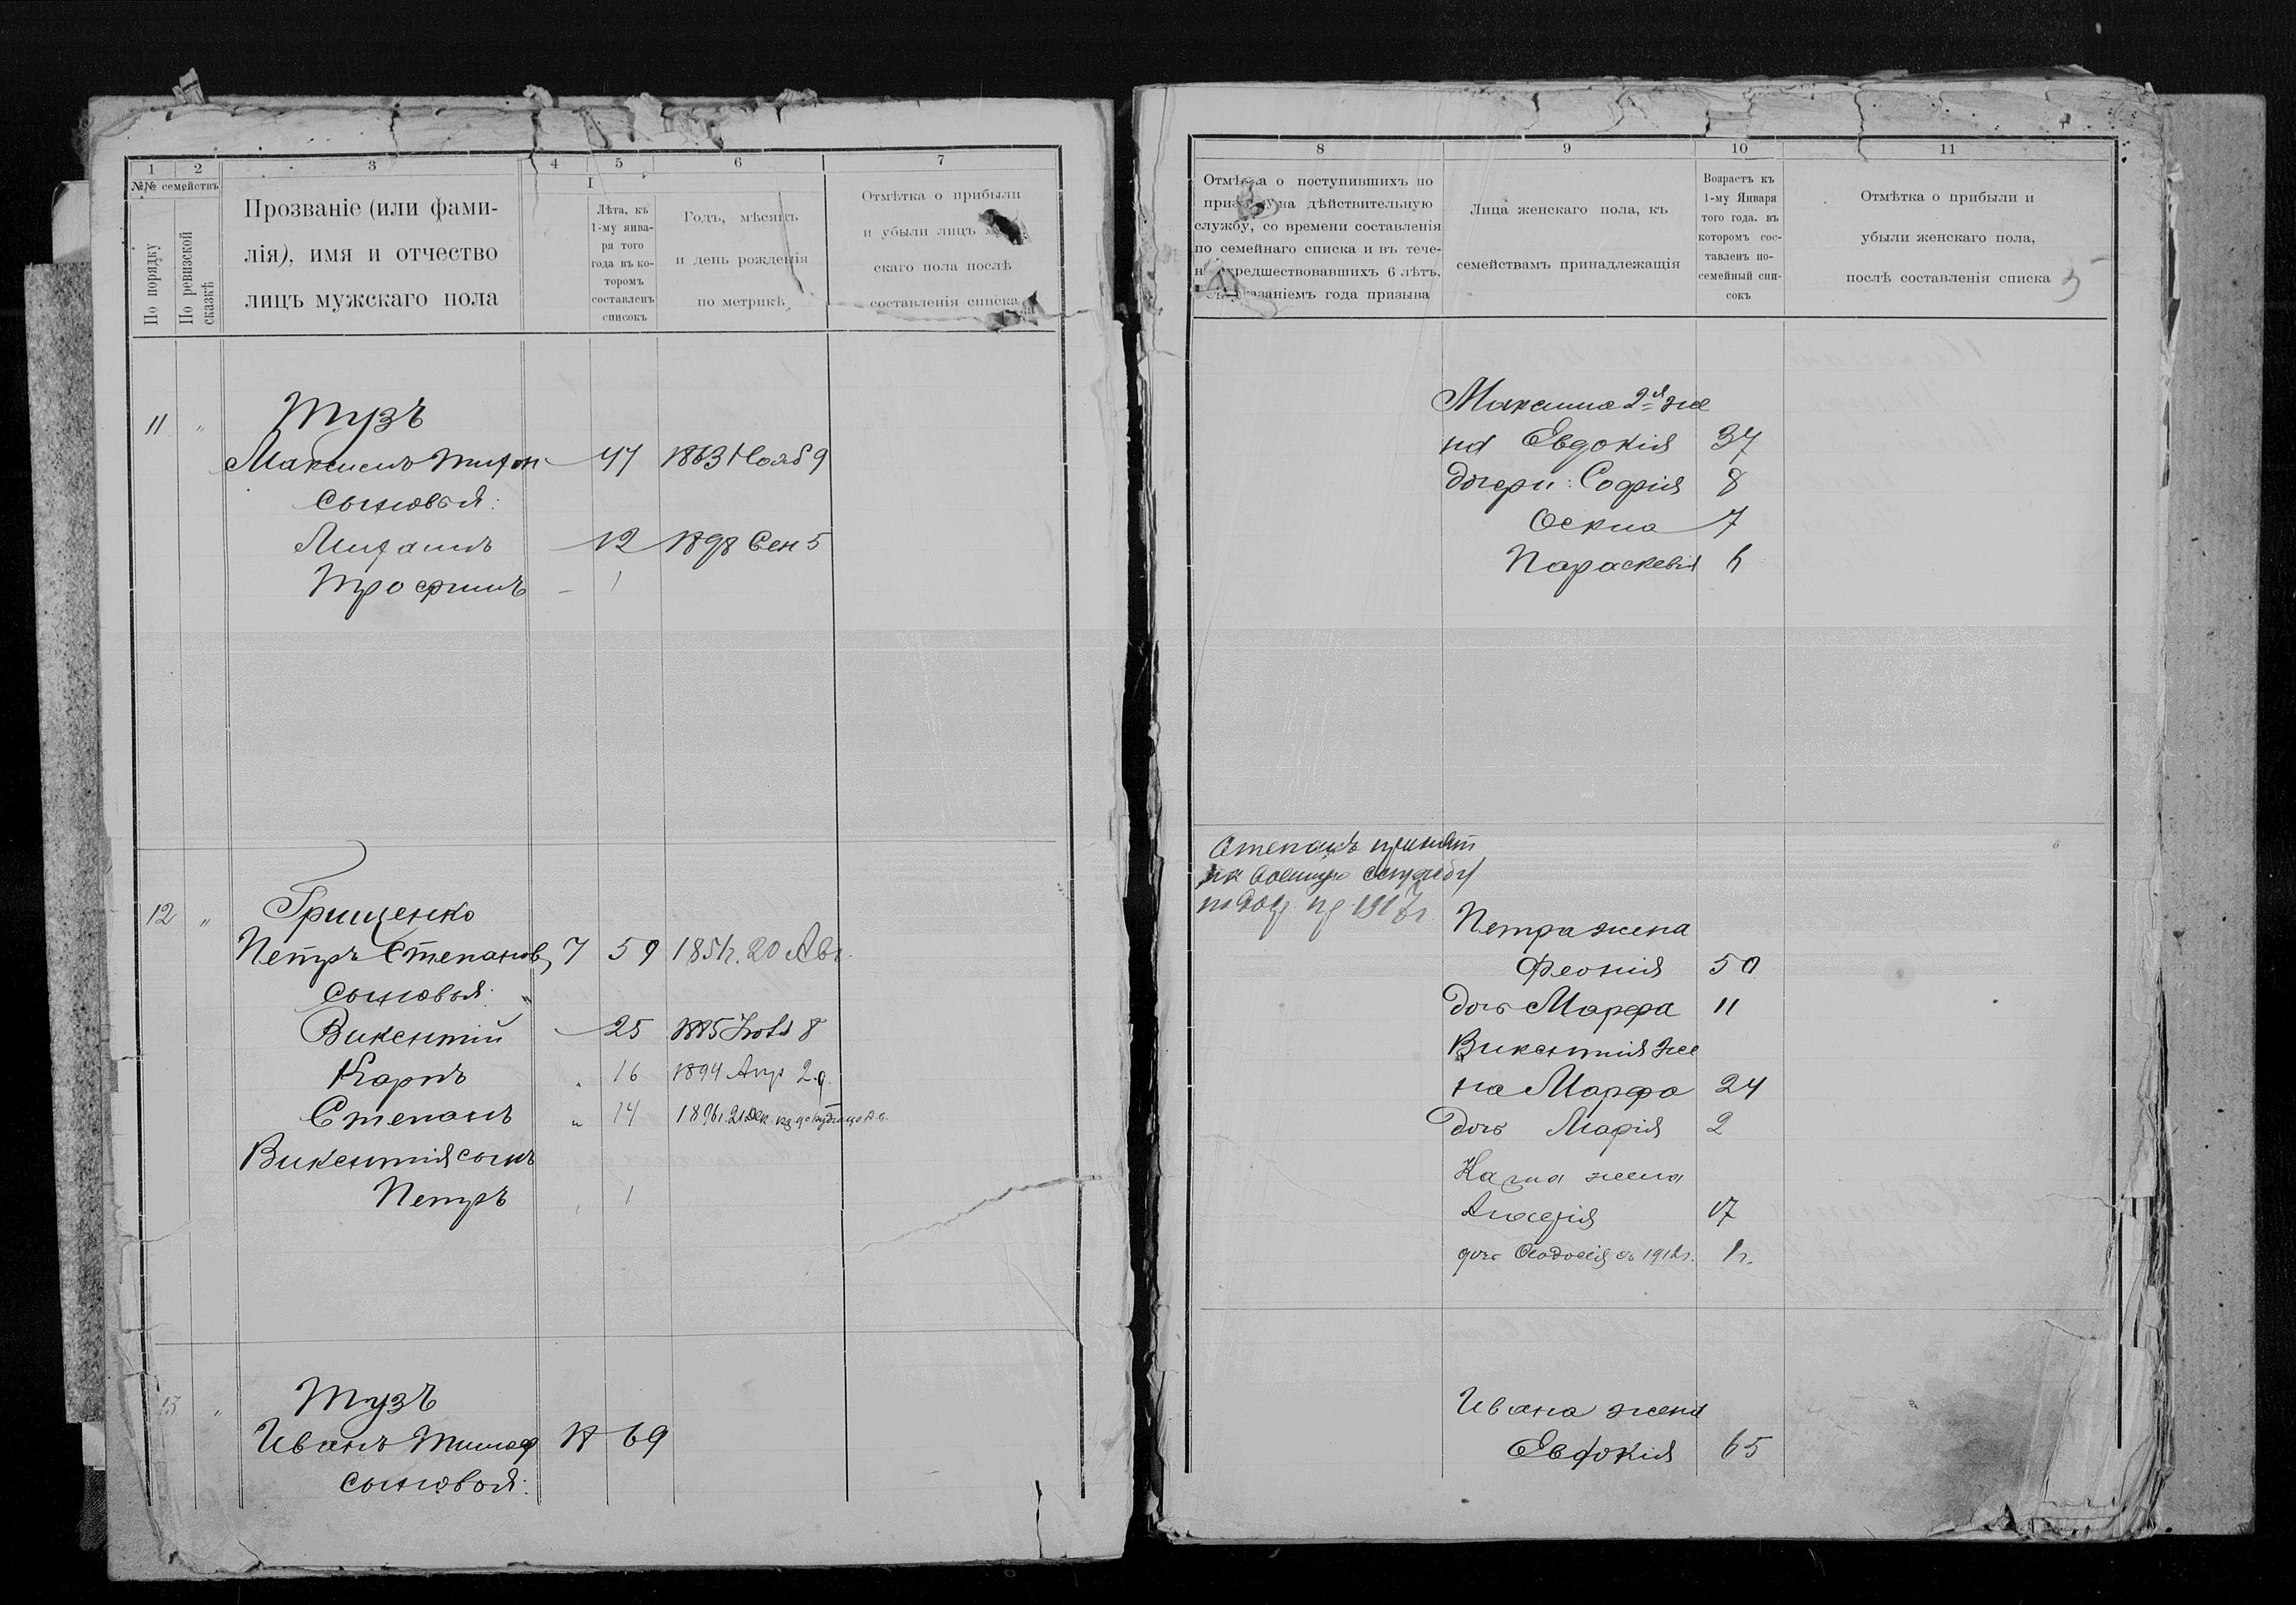 1
2
3
4
5
6
7
№№ семействъ
По порядку
По ревизской сказкѣ
Прозваніе (или фами-
лія), имя и отчество
лицъ мужскаго пола
I
Лѣта, къ
1-му янва-
ря того
года въ ко-
торомъ
составленъ
списокъ
Годъ, мѣсяцъ
и день рожденія
по метрикѣ
Отмѣтка о прибыли
и убыли лицъ
скаго пола послѣ
составленія списка
11 "
Тузъ
Максимъ 47 1863 Нояб 9
сыновья:
12 1898 Сен 5
Трофимъ - 1
12 "
Грищенко
Петръ Степанов, 7 59 1851г. 20 Авг.
сыновья:
Викентій 25 1885 8
Карпъ " 16 1894 Апр 2 д.
Степанъ " 14 1896г. 21 Дек.
Викентія сынъ
Петръ " 1
Тузъ
Иванъ Тимоф 69
сыновья:
8
9
10
11
Отмѣтка о поступившихъ по
призыву на дѣйствительную
службу, со времени составленія
по семейнаго списка и въ тече-
предшествовавшихъ 6 лѣтъ,
указаніемъ года призыва
Лица женскаго пола, къ
семействамъ принадлежащія
Возрастъ къ
1-му Января
того года. въ
которомъ сос-
тавленъ по-
семейный спи-
сокъ
Отмѣтка о прибыли и
убыли женскаго пола,
послѣ составленія списка
5
Максима 2я же
на Евдокія 37
дочери: Софія 8
7
Параскевія 6
Степанъ принят
на военную службу
Петра жена
50
дочь Марфа 11
Викентія же
на Марфа 24
дочь Марія 2
жена
17
дочь 1912г. 1г.
Ивана жена
Евдокія 65